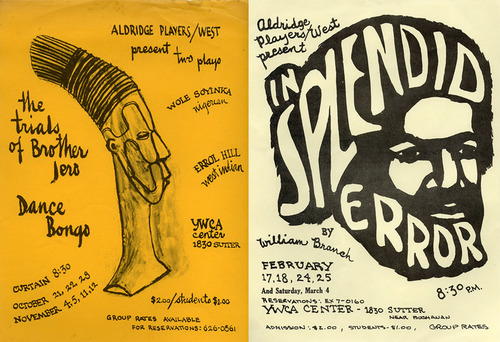 ALDRIDGE PLAYERS/WEST
present two plays
WOLE SOYINKA
nigerian
the
trials
of Brother
Jero
ERROL HILL
west indian
Dance
Bongo
YWCA
center
1830 SUTTER
CURTAIN 8:30
OCTOBER 21, 22, 28
NOVEMBER 4,5,11,12
$2.00/students $1.00
GROUP RATES AVAILABLE
FOR RESERVATIONS: 626-0561
Aldridge
Players/West
present
IN
SPLENDID
ERROR
BY
William Branch
FEBRUARY
17,18, 24, 25
And Saturday, March 4
8:30 P.M.
RESERVATIONS: EX 7-0160
YWCA CENTER - 1830 SUTTER
NEAR BUCHANAN
ADMISSION: $2.00, STUDENTS-$1.00, GROUP RATES